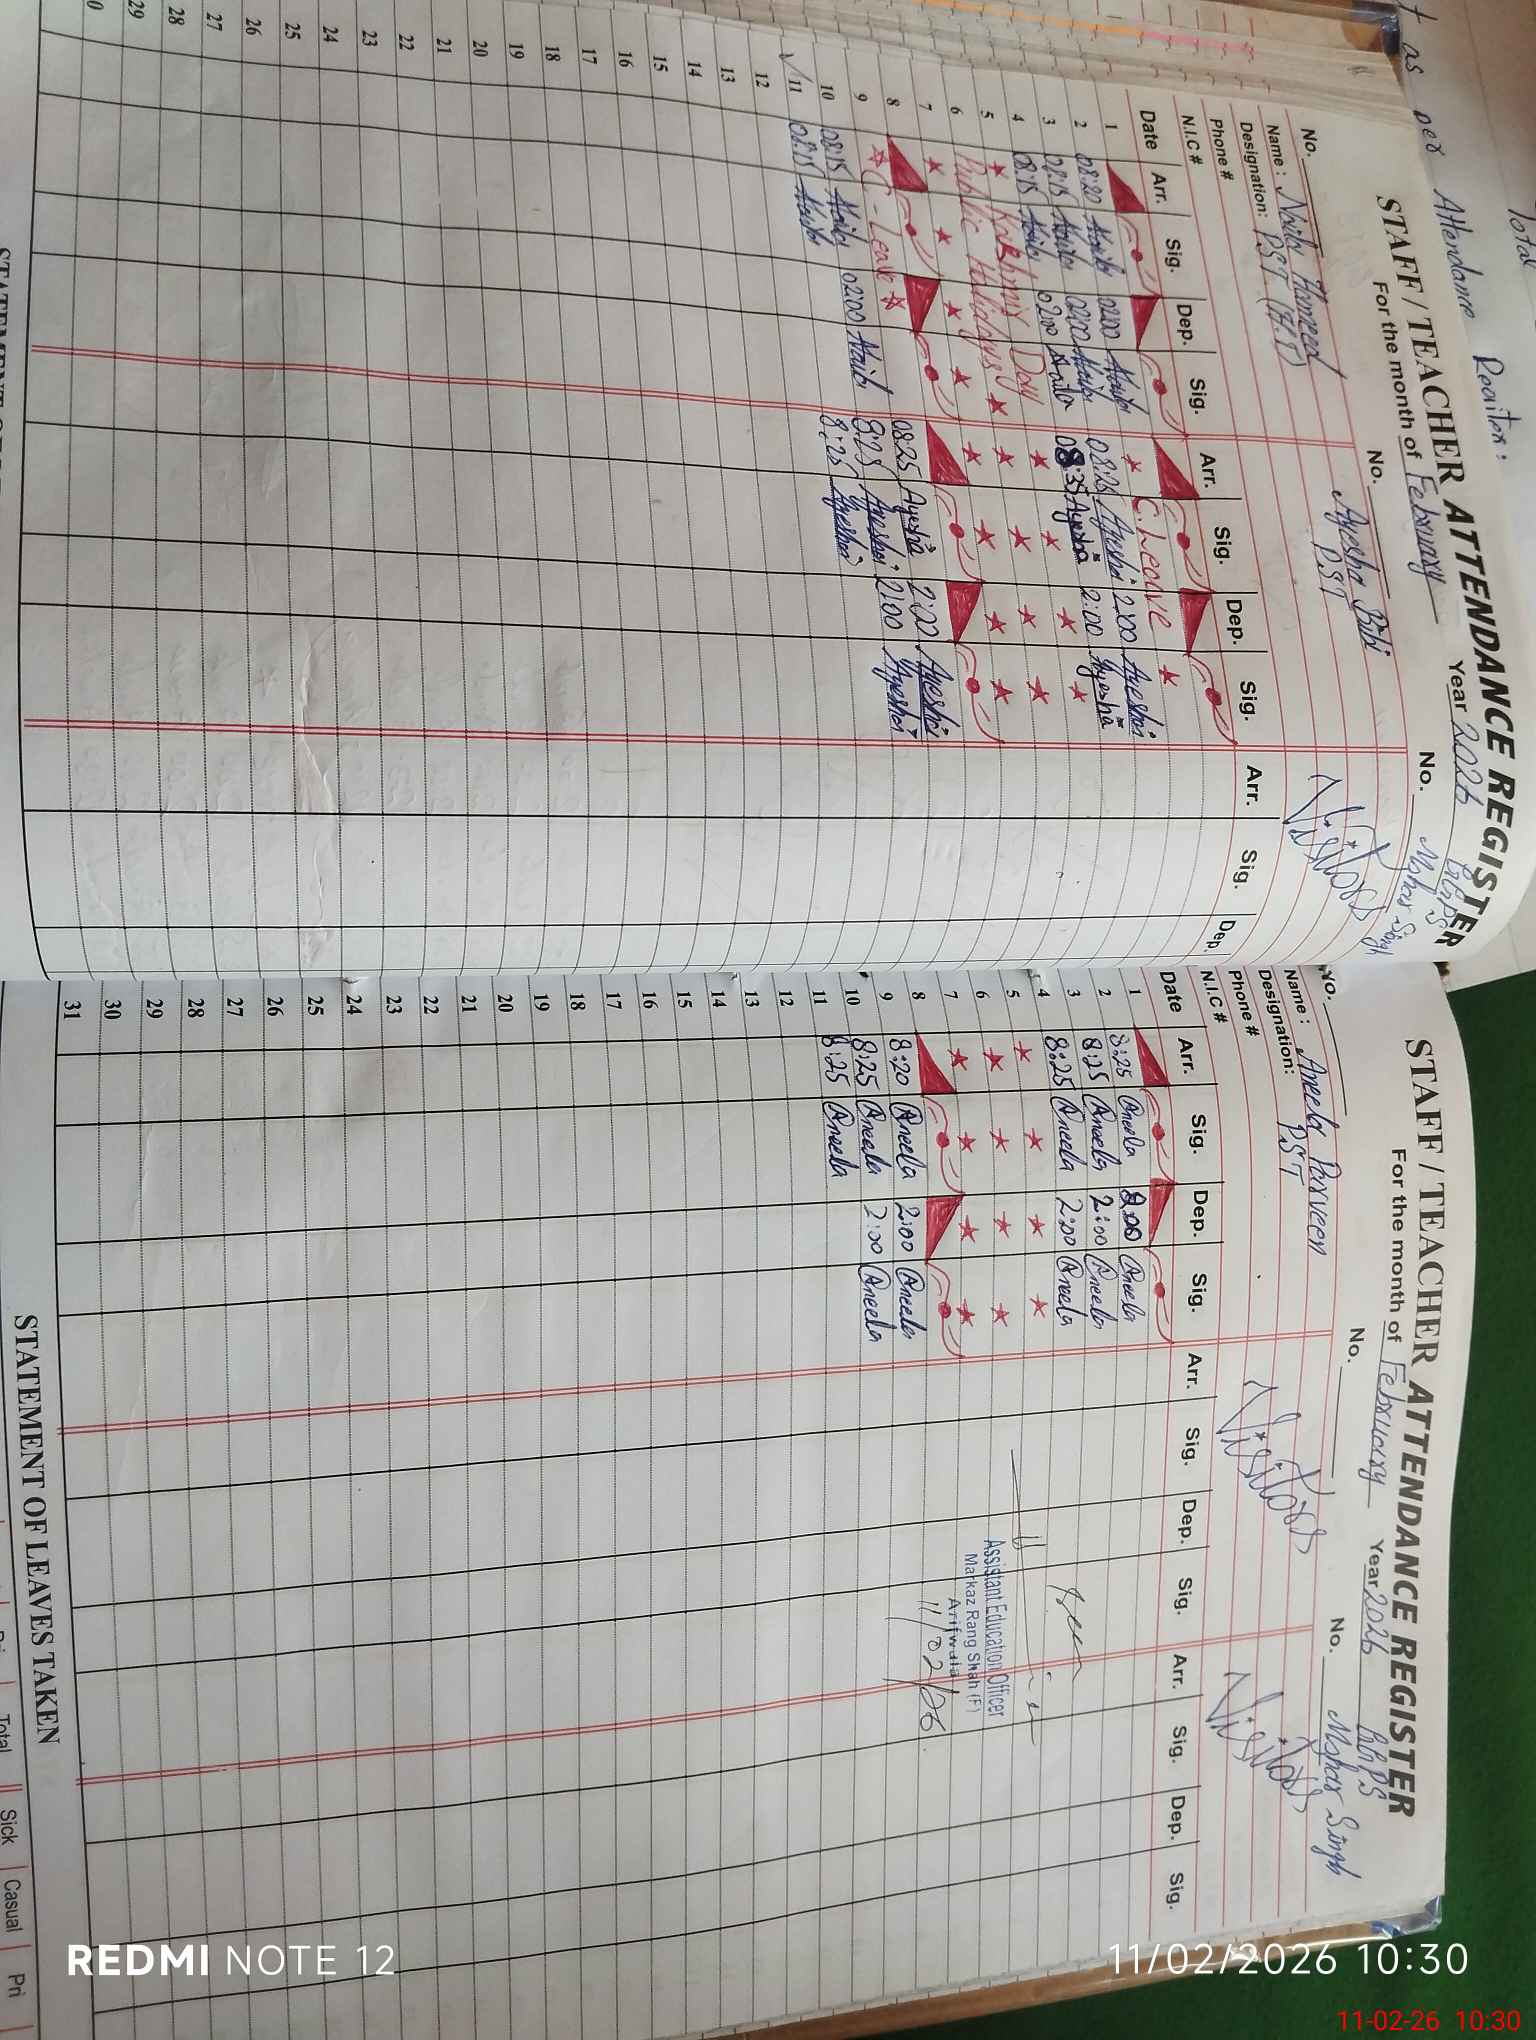 Total
as per Attendance Register:
STAFF / TEACHER ATTENDANCE REGISTER
For the month of February Year 2026 GGPS
Mahar Singh
No. No. No.
Name: Naila Hameed Ayesha Bibi Visitors
Designation: PST (H.T) PST
Phone #
N.I.C #
Date Arr. Sig. Dep. Sig. Arr. Sig. Dep. Sig. Arr. Sig. Dep.
1
2 08:20 Naila 02:00 Naila C. Leave
3 08:15 Naila 02:00 Naila 08:25 Ayesha 2:00 Ayesha
4 08:15 Naila 02:00 Naila 08:35 Ayesha 2:00 Ayesha
5 Kashmir Day
6 Public Holidays
7
8
9 C-Leave 08:25 Ayesha 2:00 Ayesha
10 08:15 Naila 02:00 Naila 8:25 Ayesha 2:00 Ayesha
11 08:15 Naila 8:25 Ayesha
12
13
14
15
16
17
18
19
20
21
22
23
24
25
26
27
28
29
STAFF / TEACHER ATTENDANCE REGISTER
For the month of February Year 2026 GGPS
Mahar Singh
No. No. No.
Name: Aneela Parveen Visitors Visitors
Designation: PST
Phone #
N.I.C #
Date Arr. Sig. Dep. Sig. Arr. Sig. Dep. Sig. Arr. Sig. Dep. Sig.
1
2 8:25 Aneela 2:00 Aneela
3 8:25 Aneela 2:00 Aneela
4 8:25 Aneela 2:00 Aneela
5
6
7
8
9 8:20 Aneela 2:00 Aneela
10 8:25 Aneela 2:00 Aneela
11 8:25 Aneela
12
13
14
15
16
17
18
19
20
21
22
23
24
25
26
27
28
29
30
31
Assistant Education Officer
Markaz Rang Shah (F)
Arifwala
11/02/26
STATEMENT OF LEAVES TAKEN
Total Sick Casual Pri
REDMI NOTE 12
11/02/2026 10:30
11-02-26 10:30